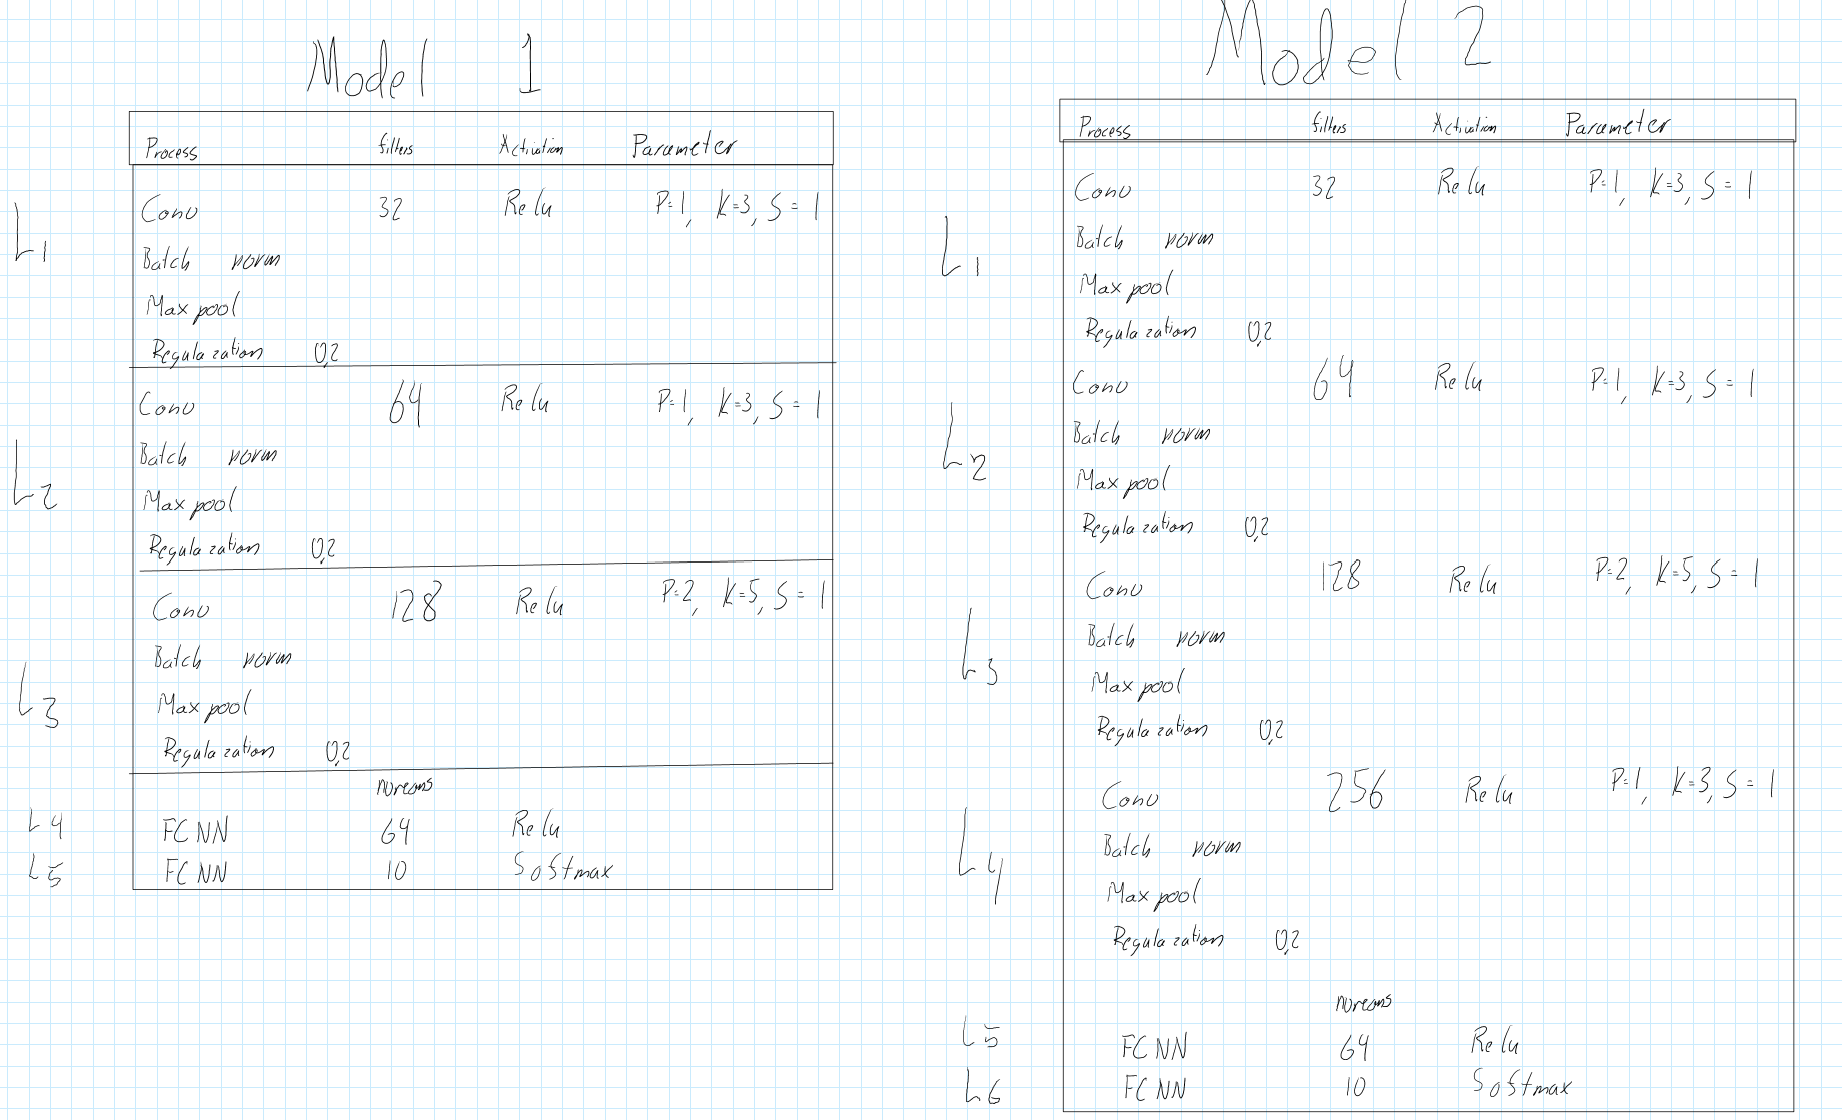 Model 1
Process filters Activation Parameter
L1
Conv 32 Relu P=1, K=3, S=1
Batch norm
Max pool
Regulazation 0,2
L2
Conv 64 Relu P=1, K=3, S=1
Batch norm
Max pool
Regulazation 0,2
L3
Conv 128 Relu P=2, K=5, S=1
Batch norm
Max pool
Regulazation 0,2
L4 FCNN 64 Relu
L5 FCNN 10 Softmax
Model 2
Process filters Activation Parameter
L1
Conv 32 Relu P=1, K=3, S=1
Batch norm
Max pool
Regulazation 0,2
L2
Conv 64 Relu P=1, K=3, S=1
Batch norm
Max pool
Regulazation 0,2
L3
Conv 128 Relu P=2, K=5, S=1
Batch norm
Max pool
Regulazation 0,2
L4
Conv 256 Relu P=1, K=3, S=1
Batch norm
Max pool
Regulazation 0,2
L5 FCNN 64 Relu
L6 FCNN 10 Softmax